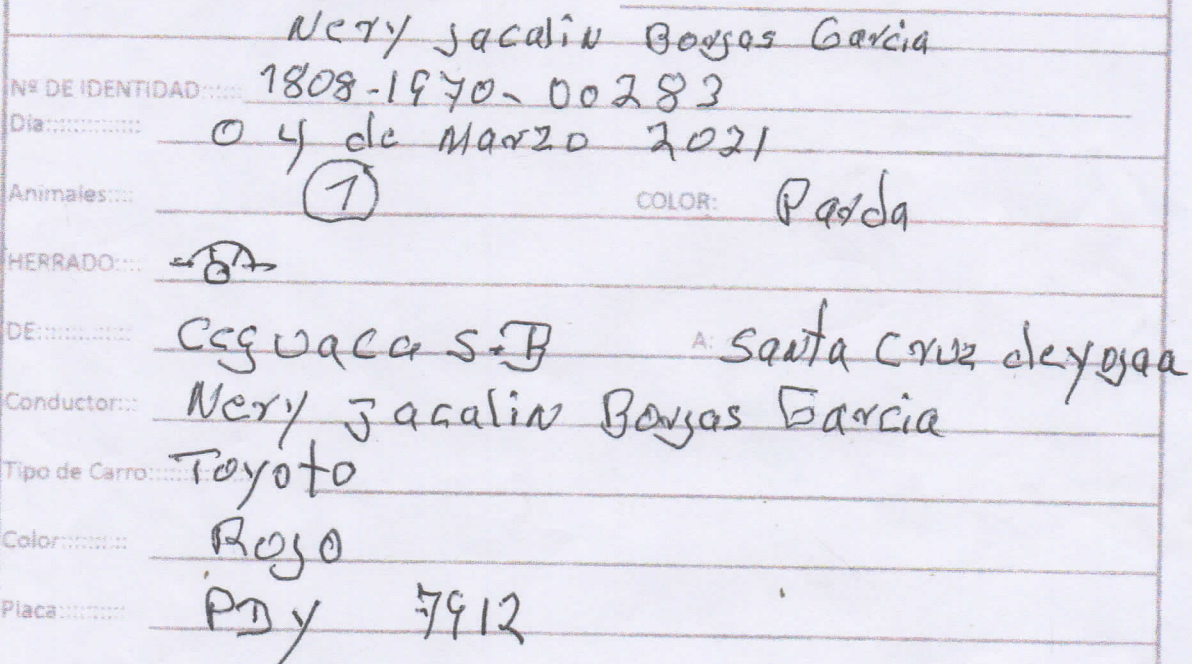 Nery Jacalin Borjas Garcia
Nº DE IDENTIDAD:::::: 1808-1970-00283
Dia:::::::::::::: 04 de Marzo 2021
Animales::::: 1 COLOR: Parda
HERRADO:::::
DE:::::::::::::: S.B A: Santa Cruz deyojaa
Conductor:::: Nery Jacalin Borjas Garcia
Tipo de Carro::::::::: Toyoto
Color::::::::::: Rojo
Placa::::::::::: PDY 7912